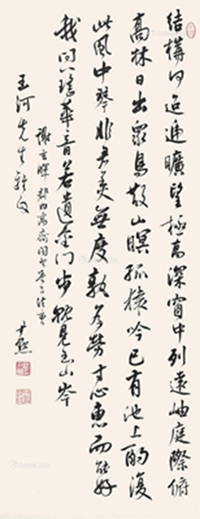 結構何迢遞曠望極高深窗中列遠岫庭際俯
高林日出衆鳥散山暝孤猿吟已有池上酌復
此風中琴非君美無度孰為勞寸心惠而能好
我問以瑤華音若遺金門步就見玉山岑
謝玄暉郡內高齋閑望答呂法曹
玉河先生雅 尹默